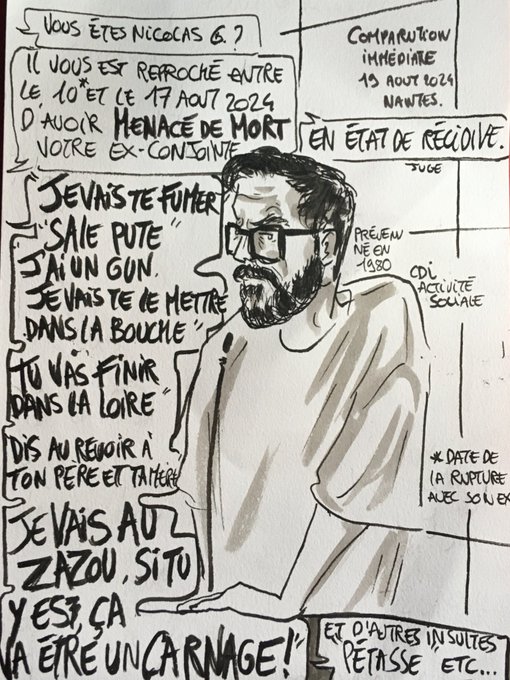 VOUS ÊTES NICOLAS G. ?
COMPARUTION
IMMÉDIATE
19 AOUT 2024
NANTES.
IL VOUS EST REPROCHÉ ENTRE
LE 10* ET LE 17 AOUT 2024
D'AVOIR MENACÉ DE MORT
VOTRE EX-CONJOINTE
EN ÉTAT DE RÉCIDIVE.
JUGE
"JE VAIS TE FUMER
"SALE PUTE"
J'AI UN GUN.
JE VAIS TE LE METTRE
DANS LA BOUCHE"
"TU VAS FINIR
DANS LA LOIRE"
DIS AU REVOIR À
TON PÈRE ET TA MÈRE
JE VAIS AU
ZAZOU, SI TU
Y EST, ÇA
VA ÊTRE UN CARNAGE!"
PRÉVENU
NÉ EN
1980
CDI
ACTIVITÉ
SOCIALE
* DATE DE
LA RUPTURE
AVEC SON EX
ET D'AUTRES INSULTES
"PÉTASSE" ETC...